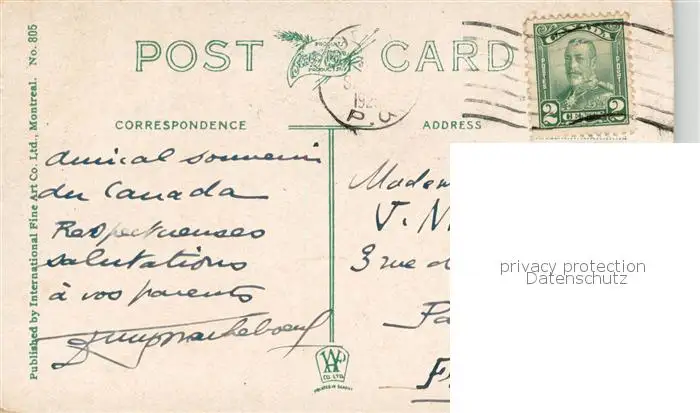 POST CARD
PRODUCED
PRODUCTS
CANADA
POSTES POST
2 CENTS 2
192
P.Q
CORRESPONDENCE
ADDRESS
amical souvenir
du Canada
Respectueuses
salutations
à vos parents
Madem
J. N
3 rue d
Pa
F
privacy protection
Datenschutz
CO. LTD.
Published by International Fine Art Co. Ltd., Montreal. No. 805